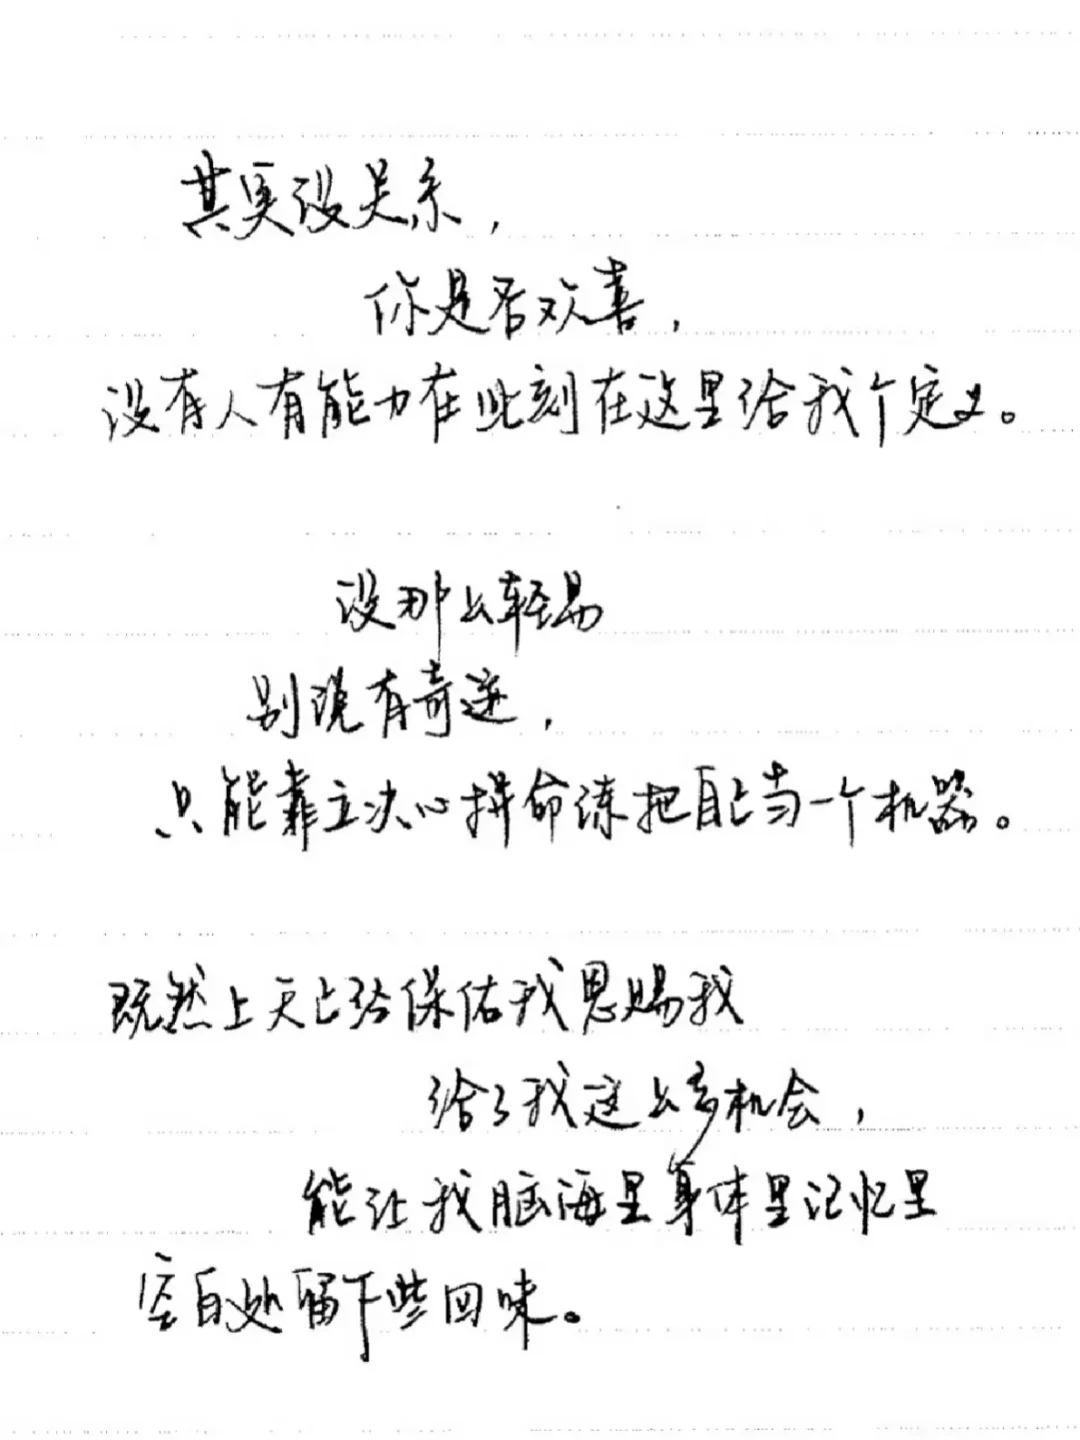 其实没关系，
你是否欢喜，
没有人有能力在此刻在这里给我个定义。
没那么轻易
别说有奇迹，
只能靠立决心拼命练把自己当一个机器。
既然上天已经保佑我恩赐我
给了我这么多机会，
能让我脑海里身体里记忆里
空白处留下些回味。